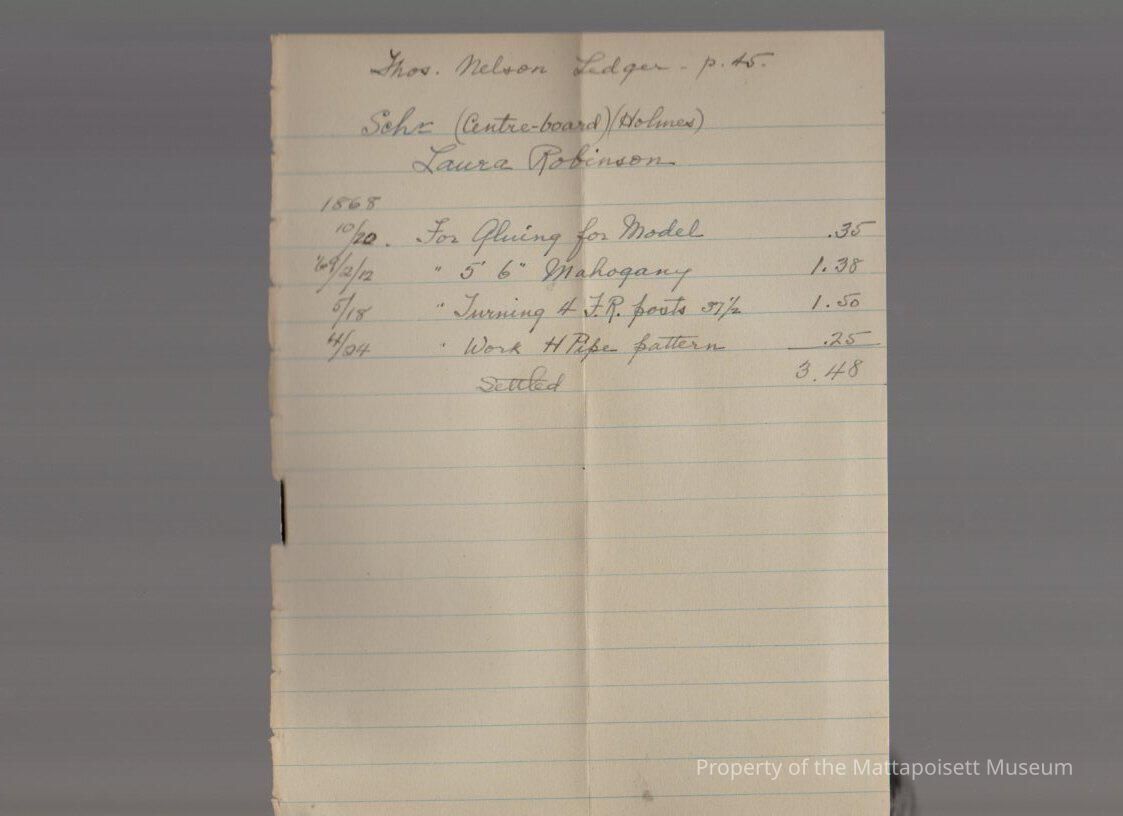 Thos. Nelson Ledger - p. 45.
Schr (Centre-board) (Holmes)
Laura Robinson
1868
10/20. For Gluing for Model .35
'69/2/12 " 5' 6" Mahogany 1.38
5/18 " Turning 4 F.R. posts 37 1/2 1.50
4/24 " Work H Pipe pattern .25
Settled 3.48
Property of the Mattapoisett Museum